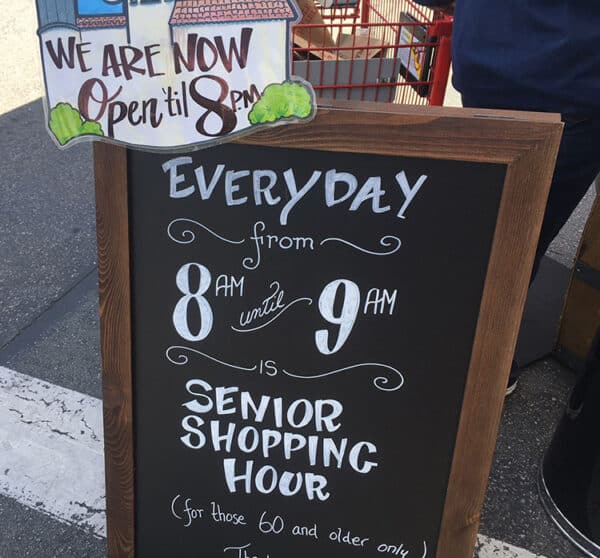 WE ARE NOW
Open 'til 8 P.M.
EVERYDAY
from
8 AM until 9 AM
IS
SENIOR
SHOPPING
HOUR
(for those 60 and older only)